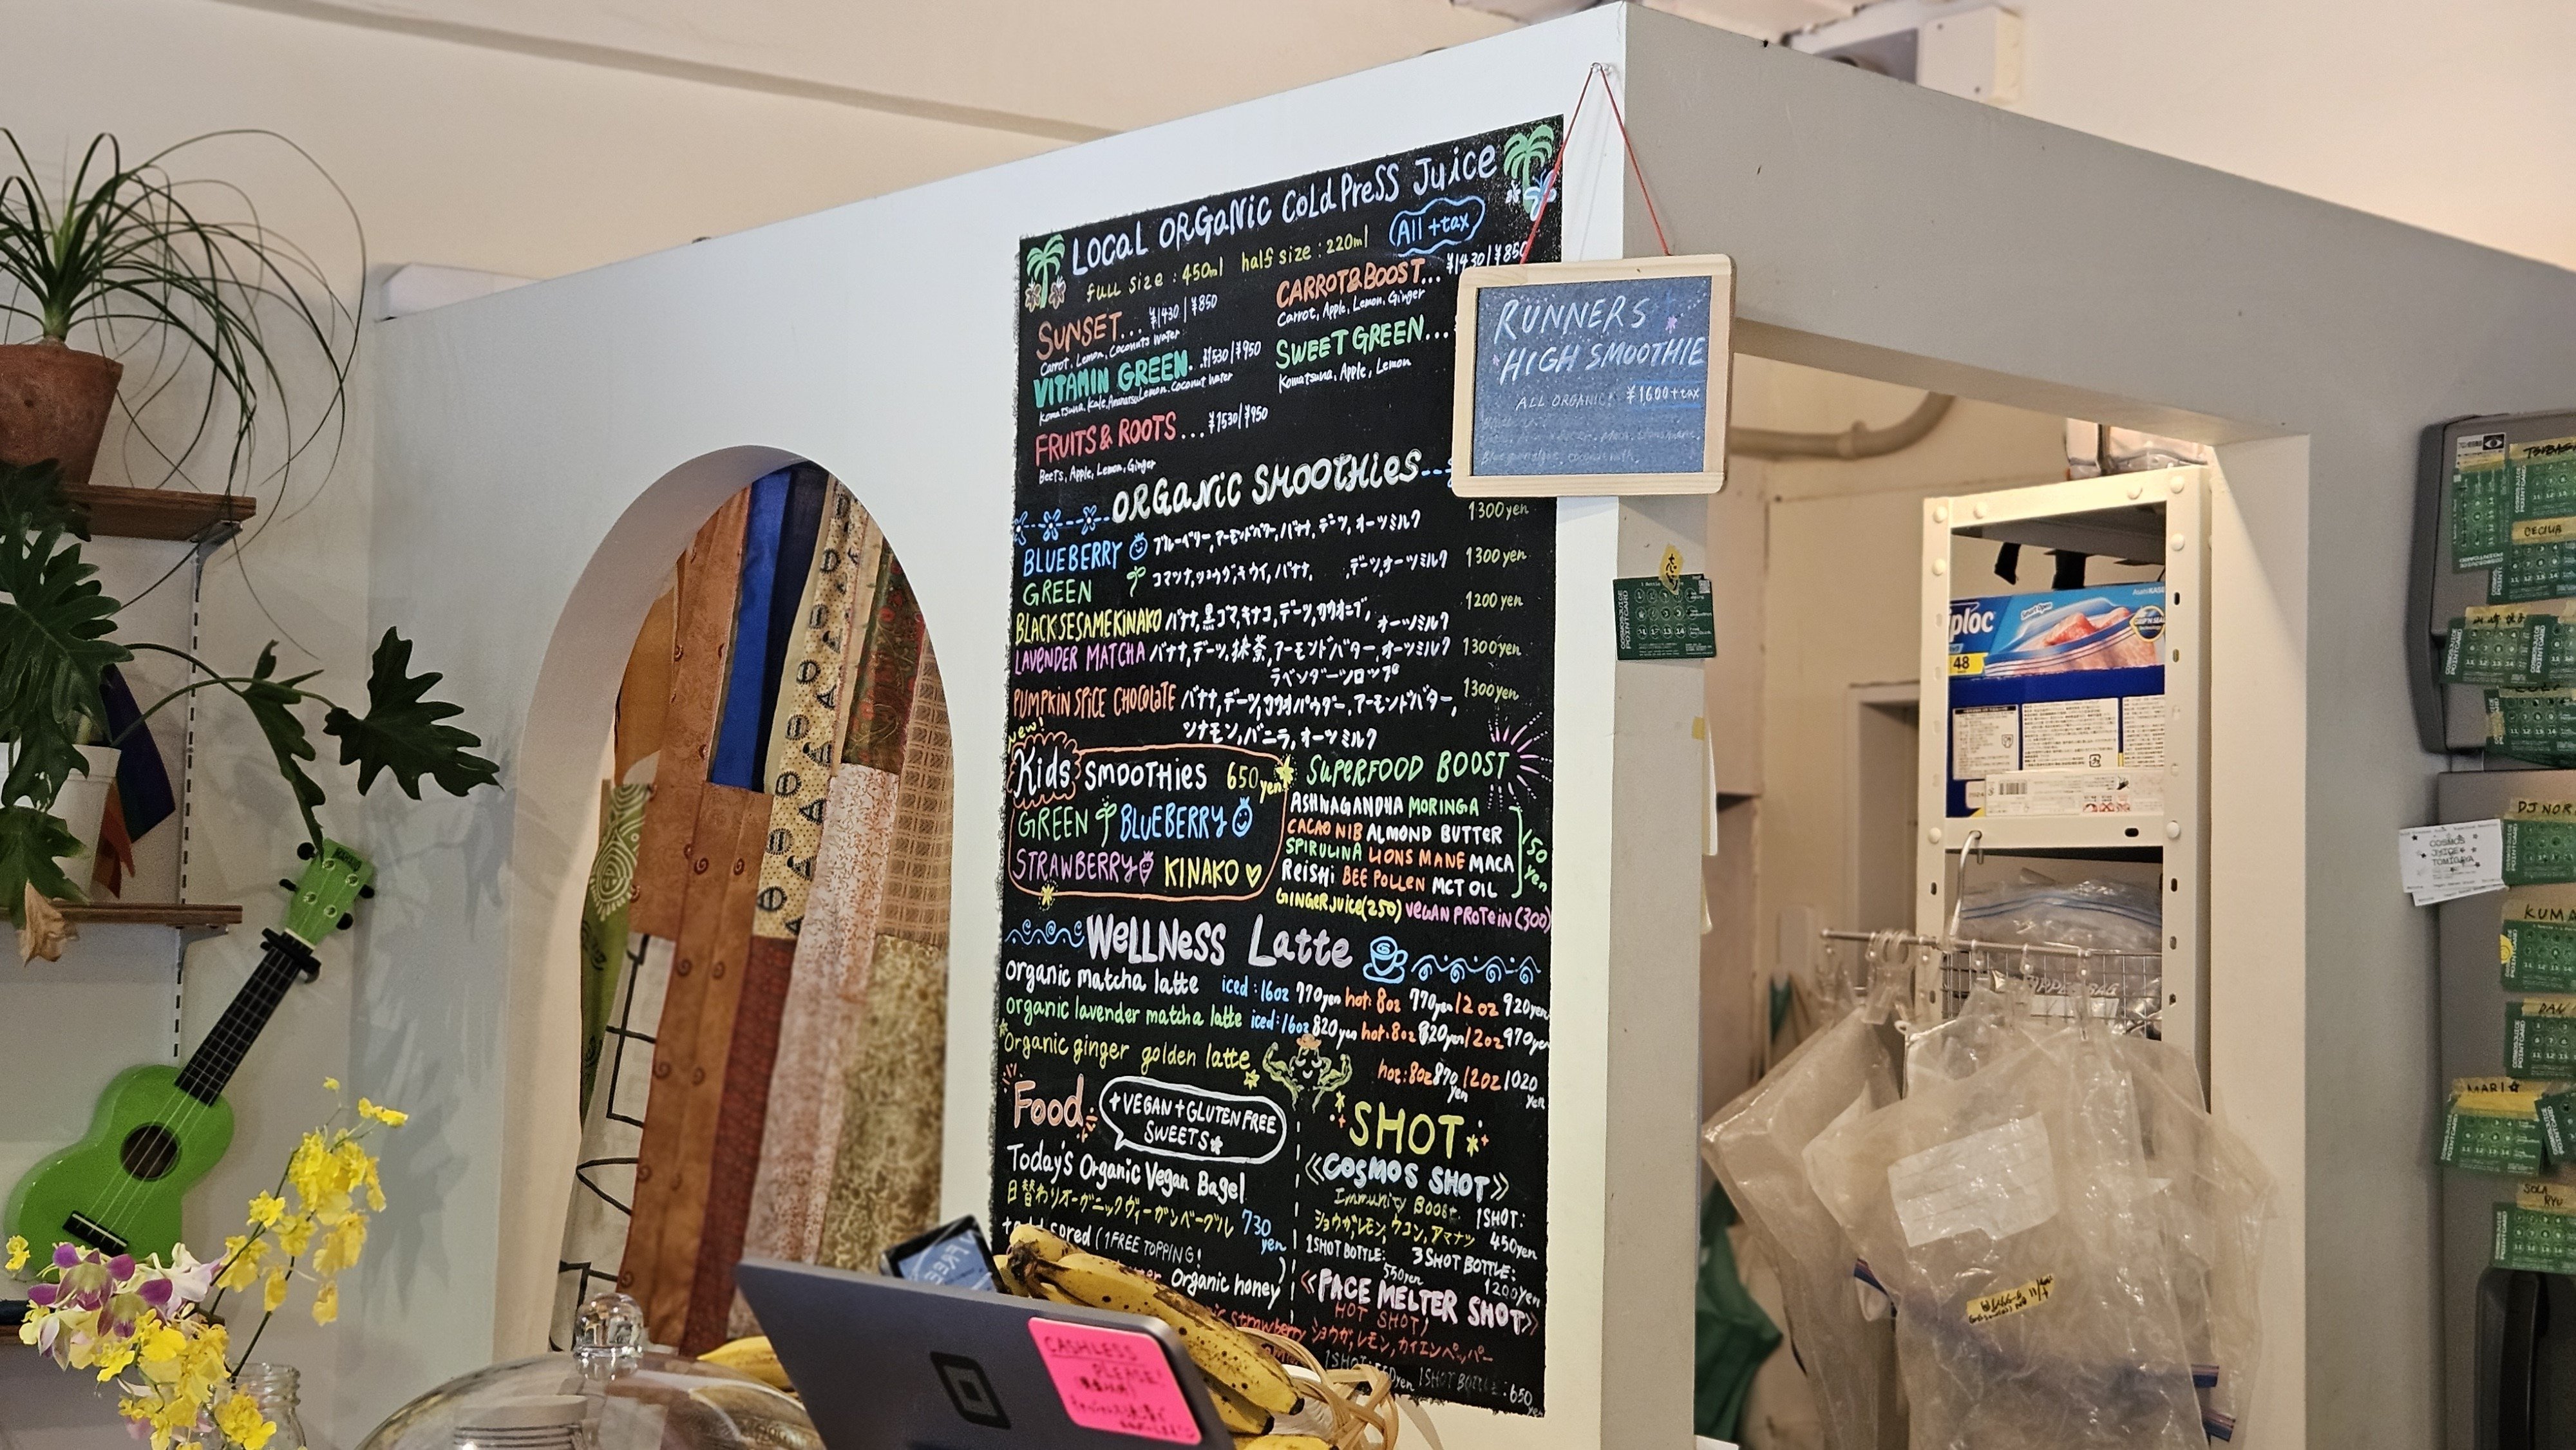 LOCAL ORGANIC COLD PRESS JUICE
full size : 450ml half size : 220ml All +tax
SUNSET... ¥1430 | ¥850
Carrot, Lemon, Coconuts Water
VITAMIN GREEN... ¥1530 | ¥950
Komatsuna, Kale, Lemon, Coconut Water
FRUITS & ROOTS ... ¥1530 | ¥950
Beets, Apple, Lemon, Ginger
CARROT & BOOST... ¥1430 | ¥850
Carrot, Apple, Lemon, Ginger
SWEET GREEN...
Komatsuna, Apple, Lemon
RUNNERS
HIGH SMOOTHIE
ALL ORGANIC ¥1600+tax
ORGANIC SMOOTHIES
BLUEBERRY ブルーベリー, アーモンドバター, バナナ, デーツ, オーツミルク 1300 yen
GREEN コマツナ, ショウガ, キウイ, バナナ, デーツ, オーツミルク 1300 yen
BLACK SESAME KINAKO バナナ, 黒ゴマ, キナコ, デーツ, カカオニブ, オーツミルク 1200 yen
LAVENDER MATCHA バナナ, デーツ, 抹茶, アーモンドバター, オーツミルク 1300 yen
ラベンダーシロップ
PUMPKIN SPICE CHOCOLATE バナナ, デーツ, カカオパウダー, アーモンドバター, 1300 yen
シナモン, バニラ, オーツミルク
new!
Kids SMOOTHIES 650 yen
GREEN BLUEBERRY
STRAWBERRY KINAKO
SUPERFOOD BOOST
ASHWAGANDHA MORINGA
CACAO NIB ALMOND BUTTER
SPIRULINA LIONS MANE MACA
REISHI BEE POLLEN MCT OIL
150 yen
GINGER JUICE (250) VEGAN PROTEIN (300)
WELLNESS Latte
organic matcha latte iced : 16oz 770yen hot: 8oz 770yen/12oz 920yen
organic lavender matcha latte iced: 16oz 820yen hot: 8oz 820yen/12oz 970yen
Organic ginger golden latte hot: 8oz 870/12oz 1020
yen yen
Food +VEGAN+GLUTEN FREE
SWEETS
Today's Organic Vegan Bagel
日替わりオーガニックヴィーガンベーグル 730
yen
(1 FREE TOPPING!
Organic honey
strawberry
SHOT
《COSMOS SHOT》
Immunity Boost 1SHOT:
ショウガ, レモン, ウコン, アマナツ 450yen
1SHOT BOTTLE: 3SHOT BOTTLE:
550yen 1200yen
《FACE MELTER SHOT》
HOT SHOT!
ショウガ, レモン, カイエンペッパー
1SHOT BOTTLE: 650
CASHLESS
PLEASE!
ziploc
48
Smart Open
COSMOS JUICE
POINT CARD
TSUBASA
CECILIA
DJ NORI
COSMOS
JUICE
TOMIGAYA
KUMA
DAN
MARI
SOLA
RYU